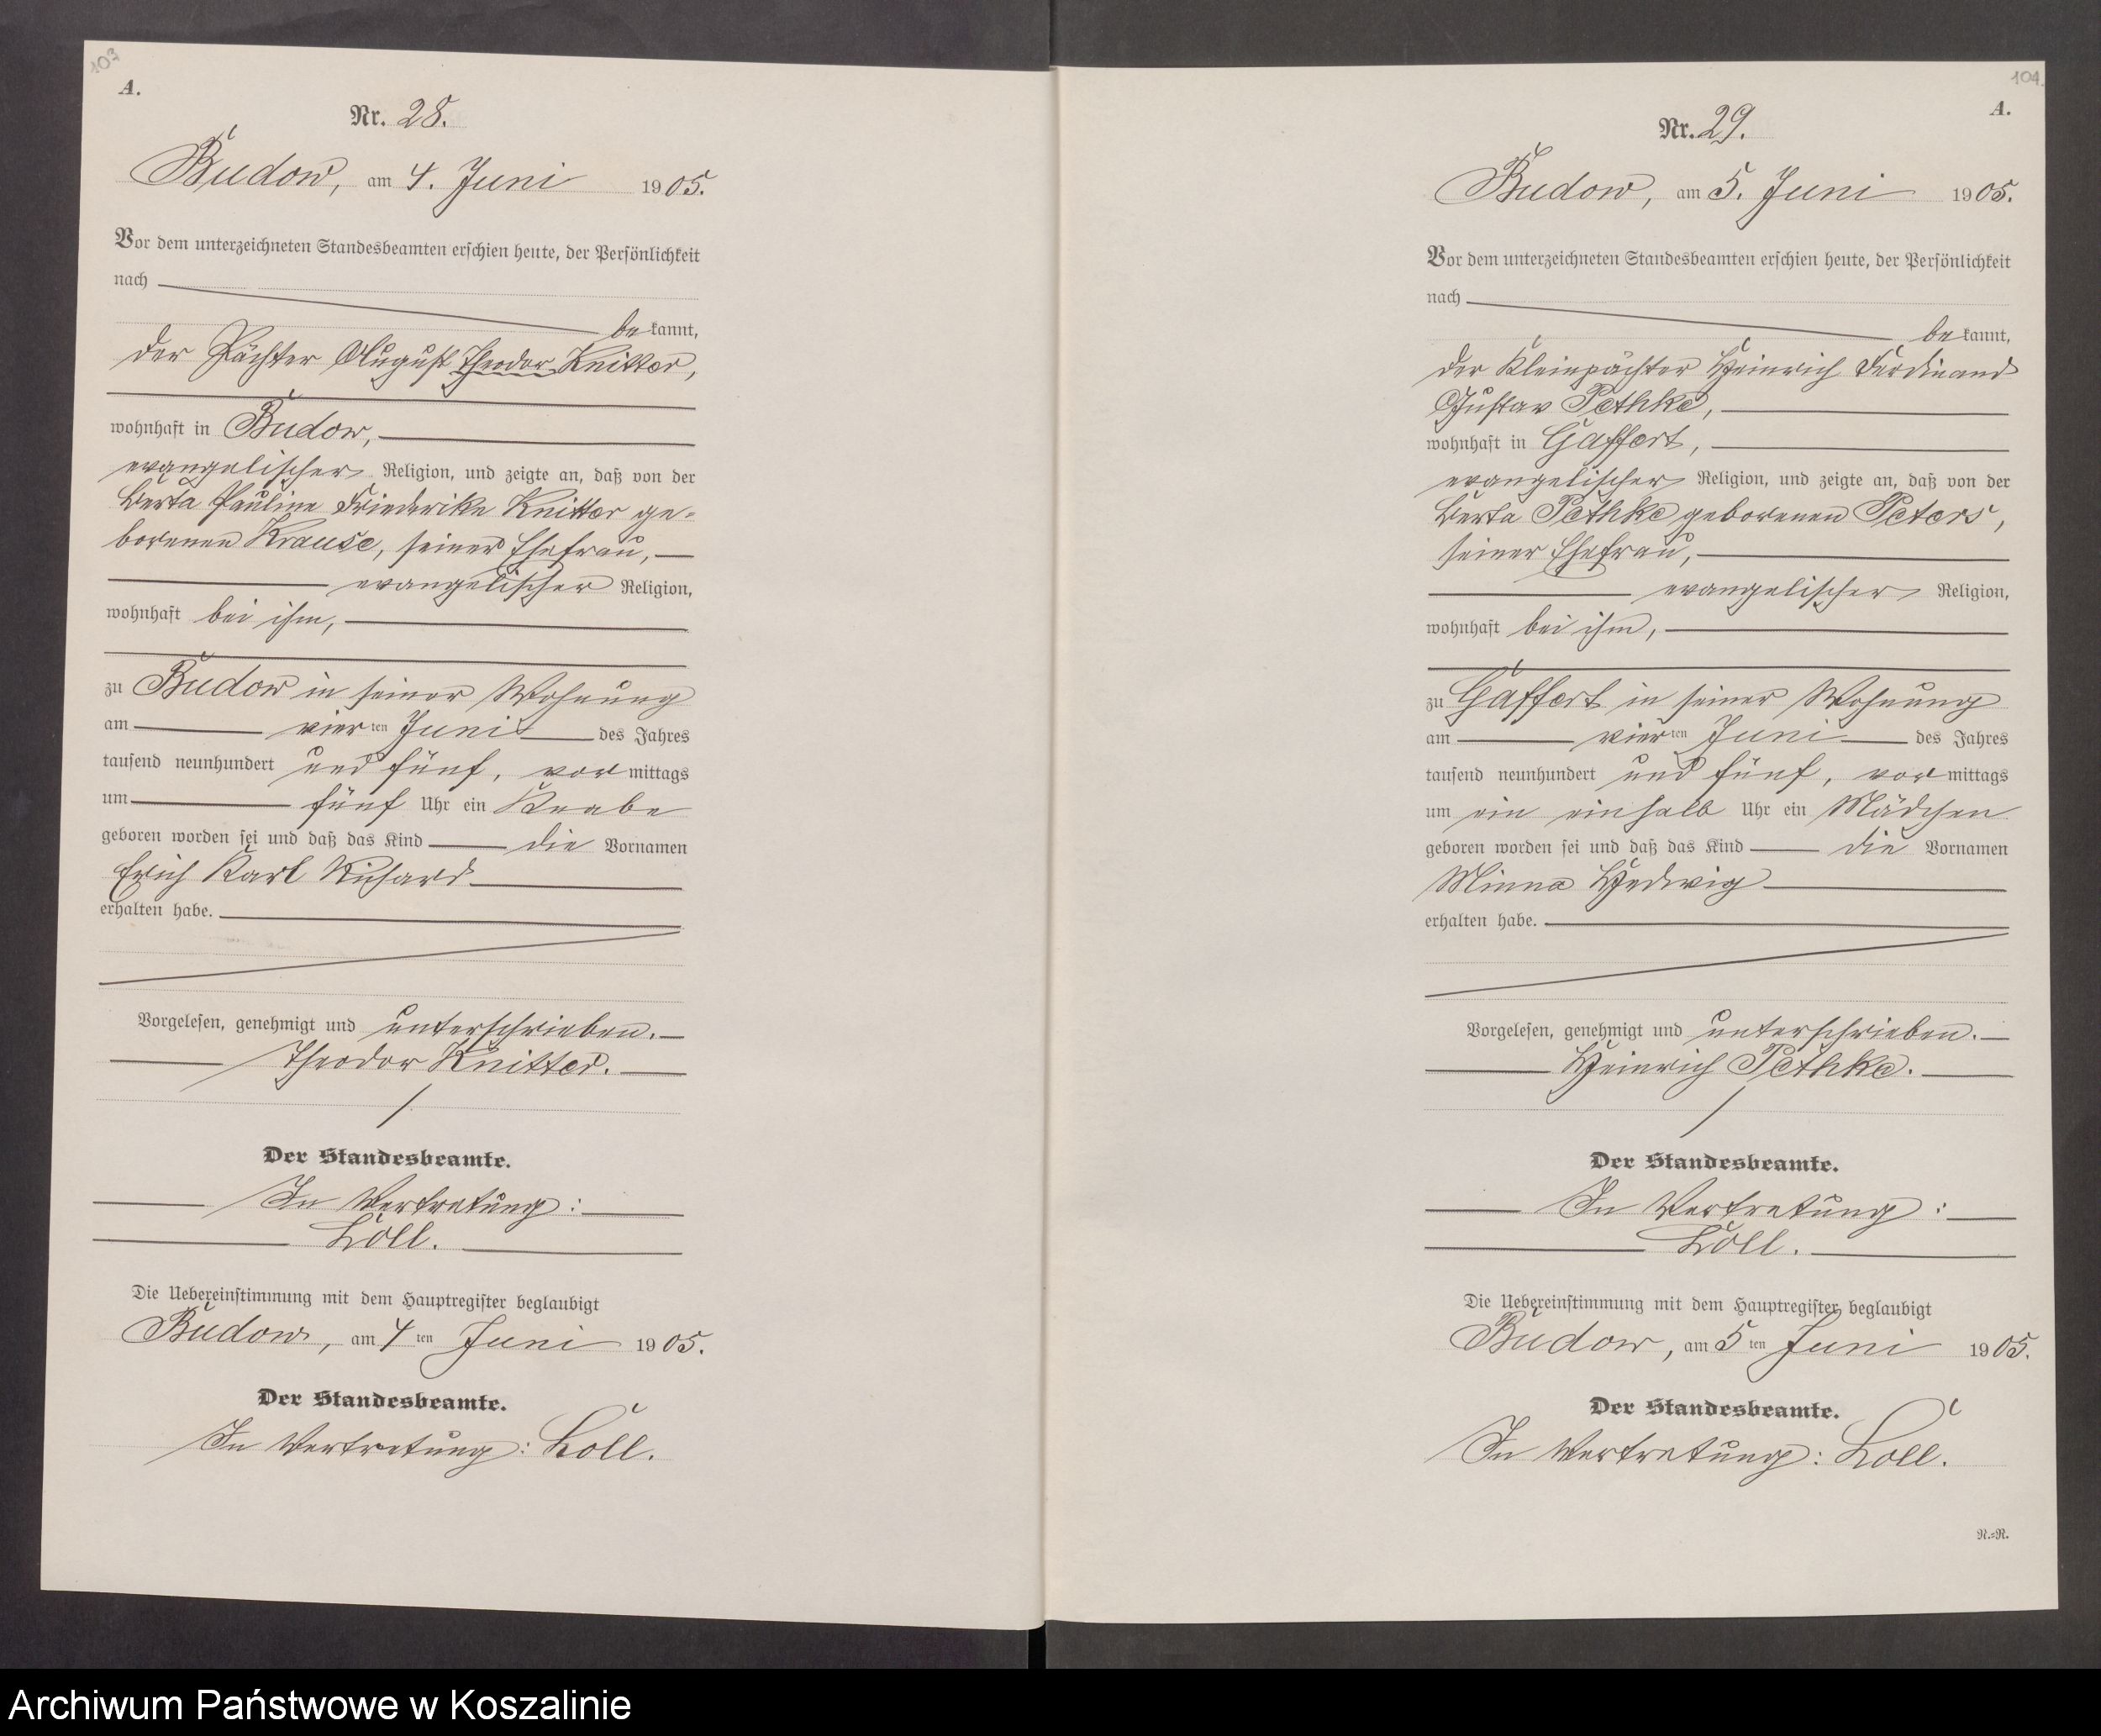 103
A.
Nr. 28.
Budow, am 4. Juni 1905.
Vor dem unterzeichneten Standesbeamten erschien heute, der Persönlichkeit
nach
bekannt,
der Pächter August Theodor Knitter,
wohnhaft in Budow,
evangelischer Religion, und zeigte an, daß von der
Berta Pauline Friederike Knitter ge-
borenen Krause, seiner Ehefrau,
evangelischer Religion,
wohnhaft bei ihm,
zu Budow in seiner Wohnung
am vierten Juni des Jahres
tausend neunhundert und fünf, vormittags
um fünf Uhr ein Knabe
geboren worden sei und daß das Kind die Vornamen
Erich Karl Richard
erhalten habe.
Vorgelesen, genehmigt und unterschrieben.
Theodor Knitter.
Der Standesbeamte.
In Vertretung:
Loll.
Die Uebereinstimmung mit dem Hauptregister beglaubigt
Budow, am 4ten Juni 1905.
Der Standesbeamte.
In Vertretung: Loll.
104.
A.
Nr. 29.
Budow, am 5. Juni 1905.
Vor dem unterzeichneten Standesbeamten erschien heute, der Persönlichkeit
nach
bekannt,
der Kleinpächter Heinrich Ferdinand
Gustav Pethke,
wohnhaft in Gaffert,
evangelischer Religion, und zeigte an, daß von der
Berta Pethke geborenen Peters,
seiner Ehefrau,
evangelischer Religion,
wohnhaft bei ihm,
zu Gaffert in seiner Wohnung
am vierten Juni des Jahres
tausend neunhundert und fünf, vormittags
um ein einhalb Uhr ein Mädchen
geboren worden sei und daß das Kind die Vornamen
Minna Hedwig
erhalten habe.
Vorgelesen, genehmigt und unterschrieben.
Heinrich Pethke.
Der Standesbeamte.
In Vertretung:
Loll.
Die Uebereinstimmung mit dem Hauptregister beglaubigt
Budow, am 5ten Juni 1905.
Der Standesbeamte.
In Vertretung: Loll.
R.=R.
Archiwum Państwowe w Koszalinie